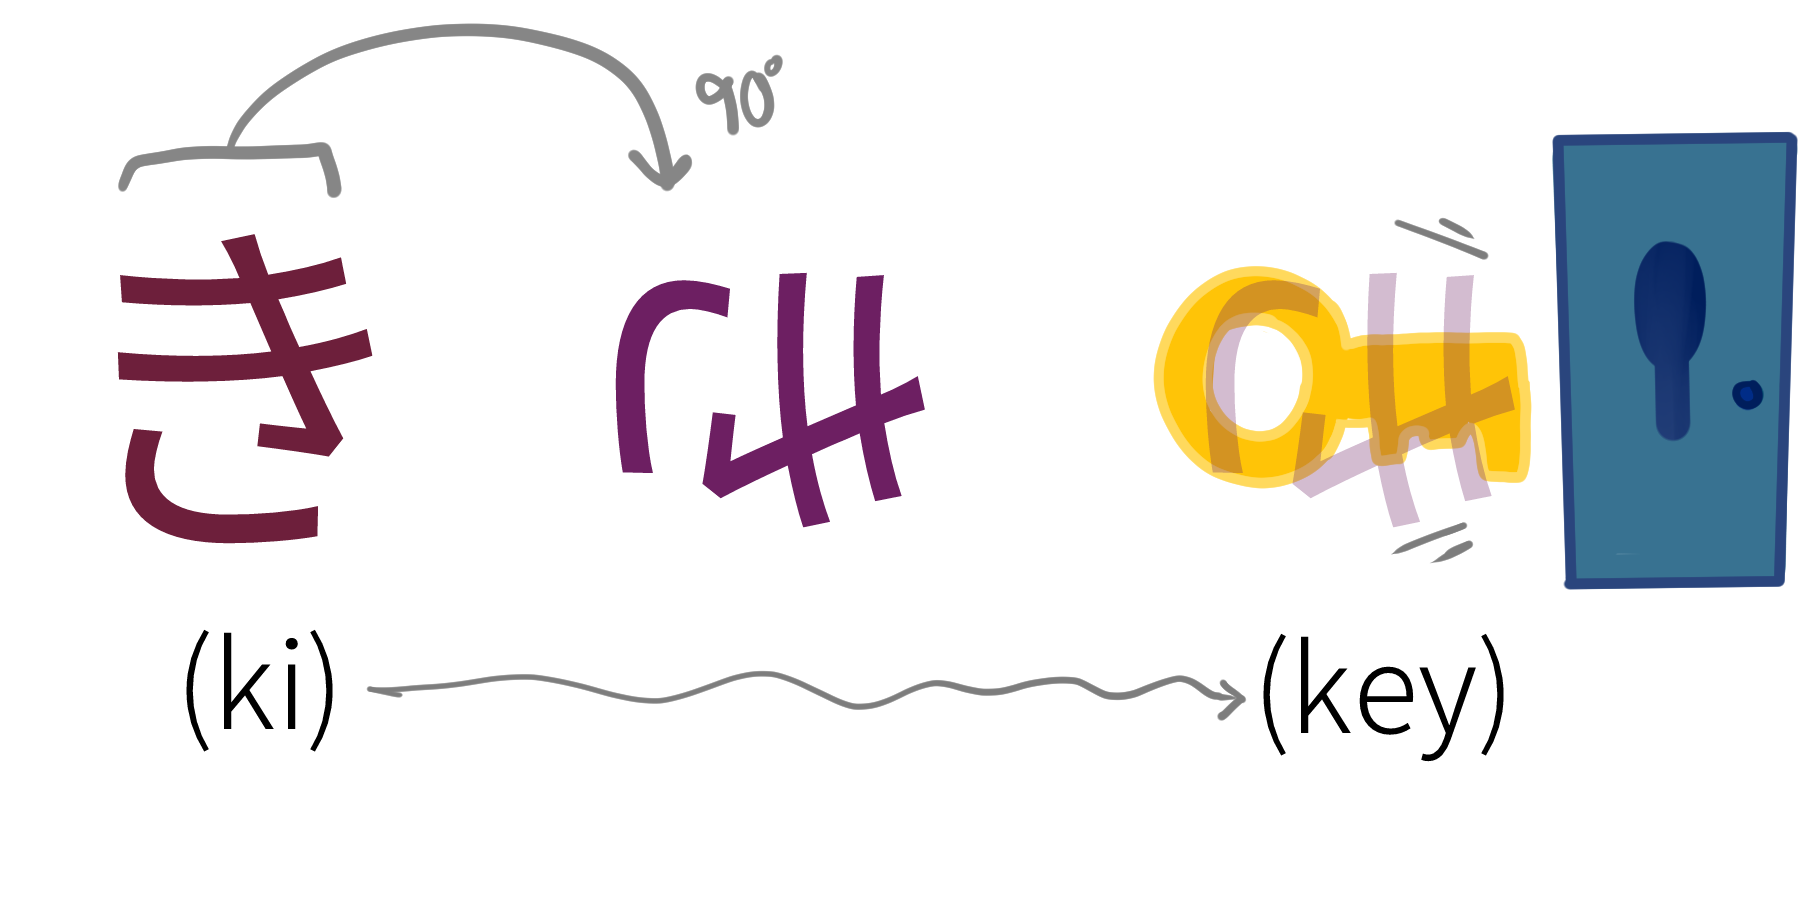 90°
き
き
き
(ki)
(key)